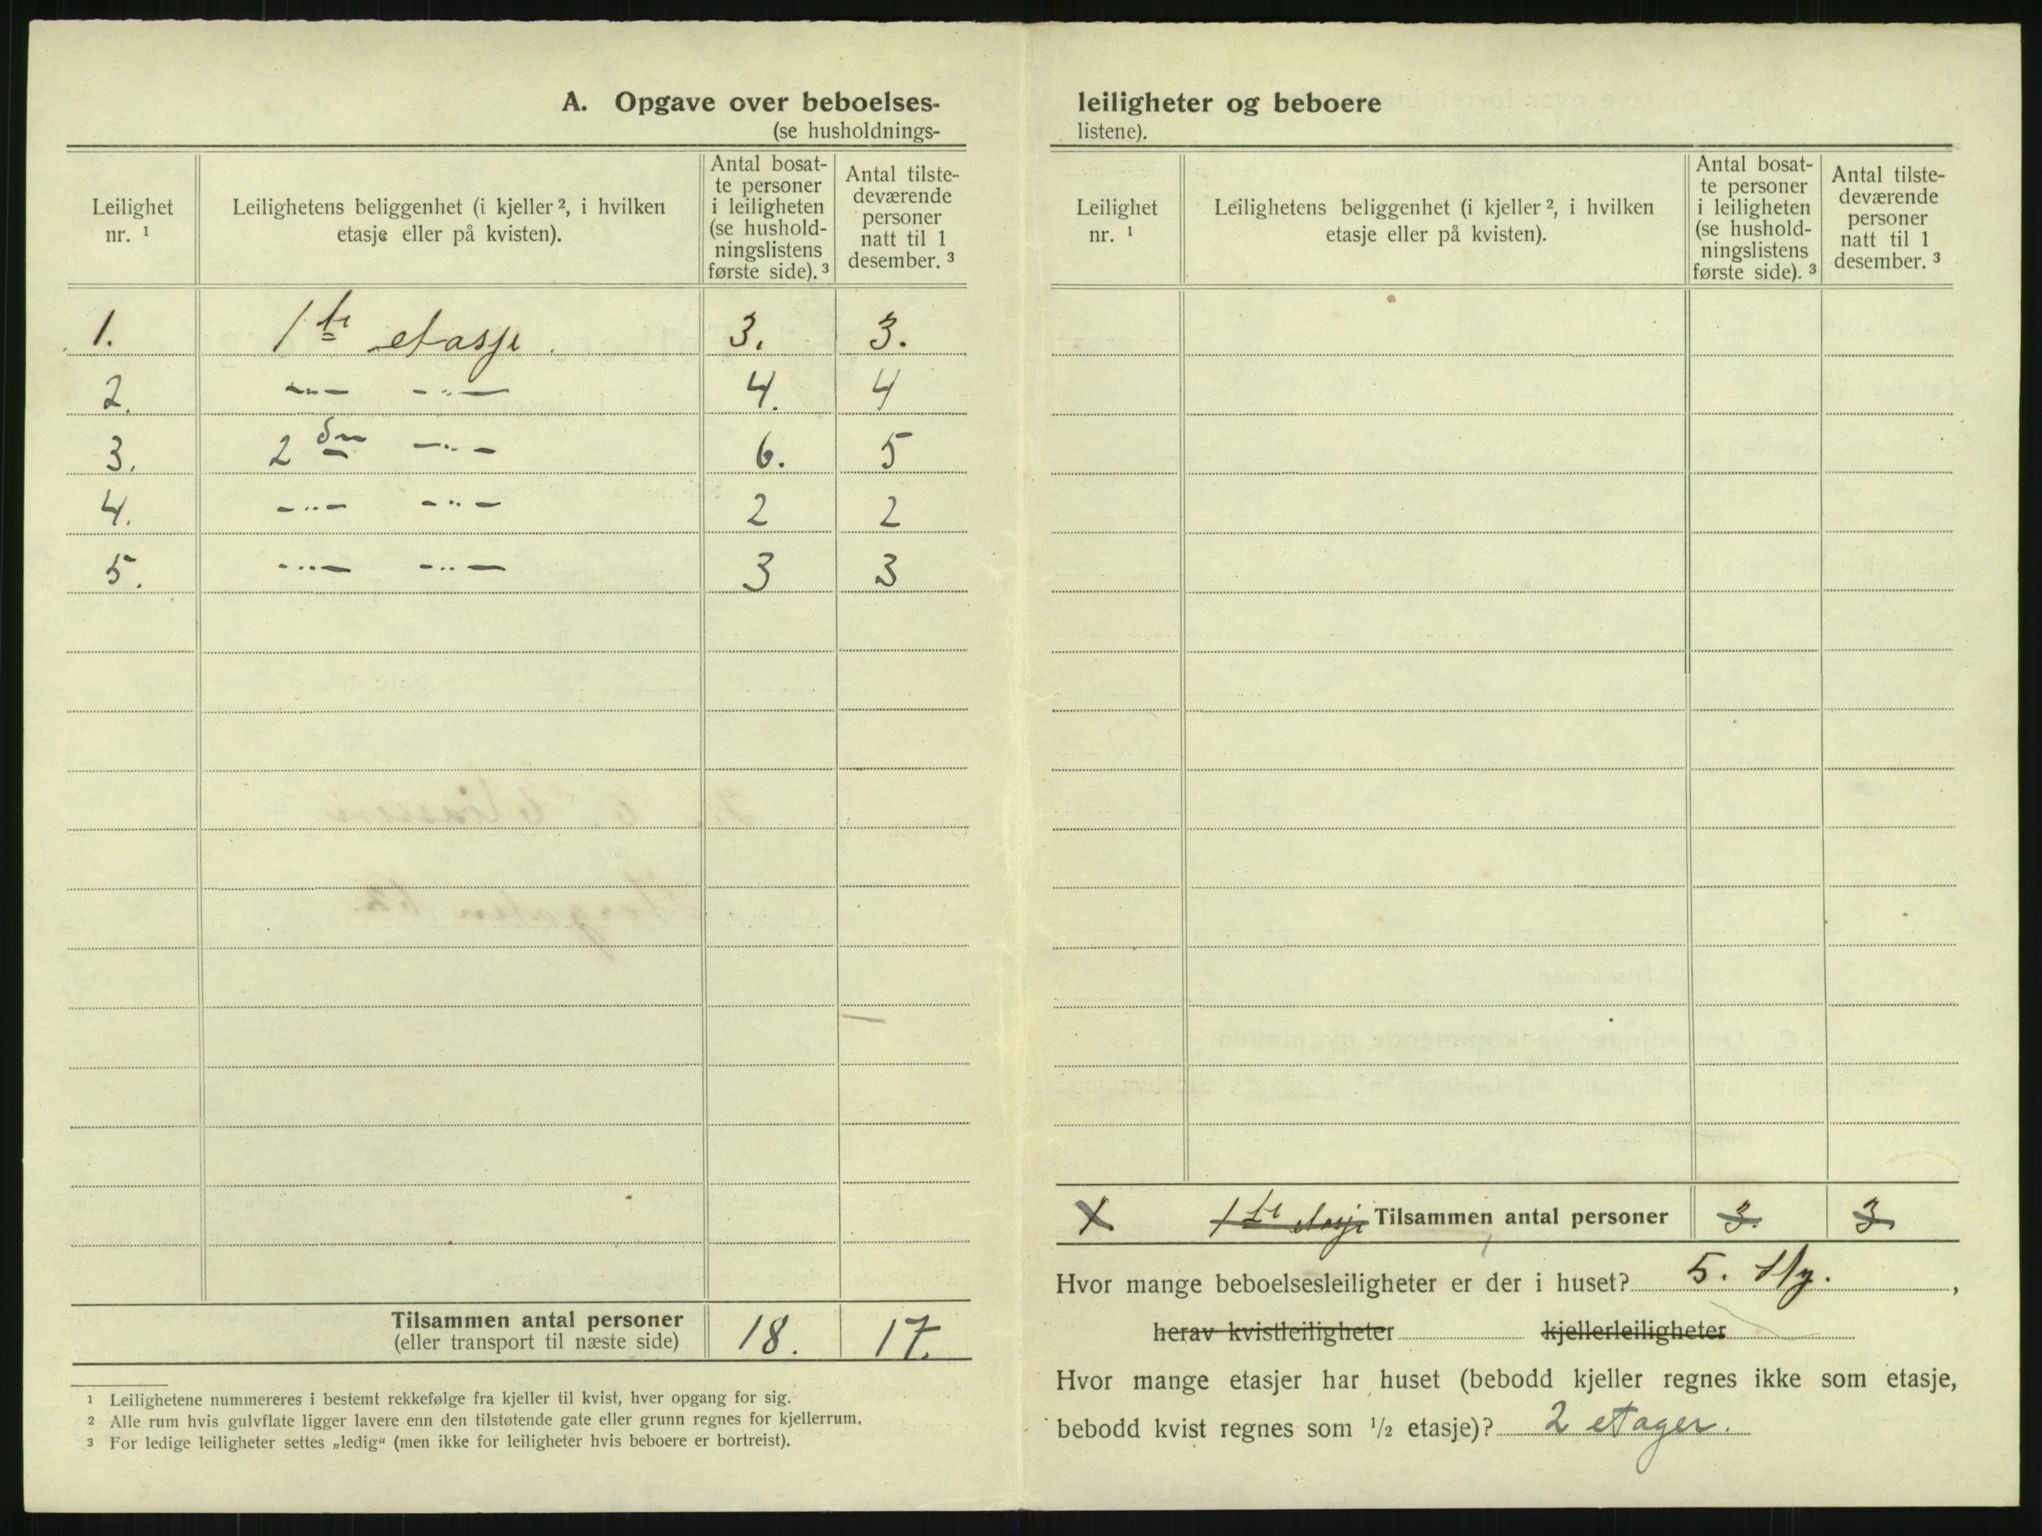 A. Opgave over beboelses-
(se husholdnings-
Leilighet nr. ¹
Leilighetens beliggenhet (i kjeller ², i hvilken etasje eller på kvisten).
Antal bosat-
te personer
i leiligheten
(se hushold-
ningslistens
første side). ³
Antal tilste-
deværende
personer
natt til 1
desember. ³
1. 1ste etasje. 3. 3.
2. —"— —"— 4. 4
3. 2den —"— 6. 5
4. —"— —"— 2 2
5. —"— —"— 3 3
Tilsammen antal personer 18. 17.
(eller transport til næste side)
¹ Leilighetene nummereres i bestemt rekkefølge fra kjeller til kvist, hver opgang for sig.
² Alle rum hvis gulvflate ligger lavere enn den tilstøtende gate eller grunn regnes for kjellerrum.
³ For ledige leiligheter settes „ledig“ (men ikke for leiligheter hvis beboere er bortreist).
leiligheter og beboere
listene).
Leilighet nr. ¹
Leilighetens beliggenhet (i kjeller ², i hvilken etasje eller på kvisten).
Antal bosat-
te personer
i leiligheten
(se hushold-
ningslistens
første side). ³
Antal tilste-
deværende
personer
natt til 1
desember. ³
1. 1ste etasje Tilsammen antal personer 3. 3.
Hvor mange beboelsesleiligheter er der i huset? 5. ,
herav kvistleiligheter kjellerleiligheter
Hvor mange etasjer har huset (bebodd kjeller regnes ikke som etasje,
bebodd kvist regnes som ½ etasje)? 2 etager.